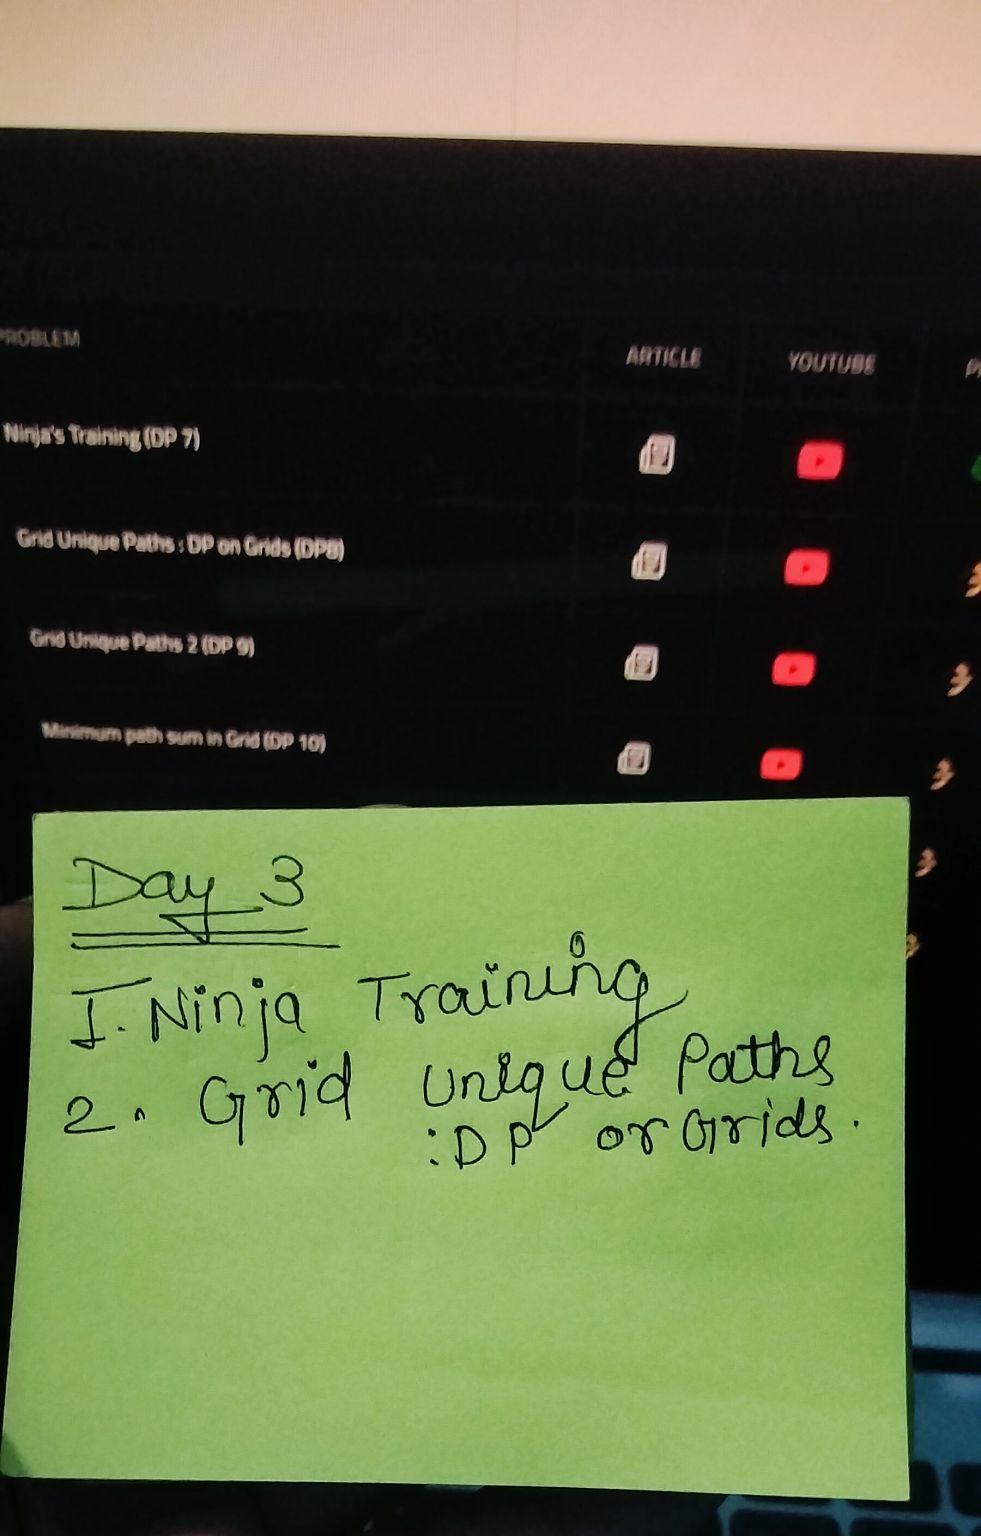 PROBLEM ARTICLE YOUTUBE
Ninja's Training (DP 7)
Grid Unique Paths : DP on Grids (DP8)
Grid Unique Paths 2 (DP 9)
Minimum path sum in Grid (DP 10)
Day 3
1. Ninja Training
2. Grid Unique Paths
:DP or Grids.